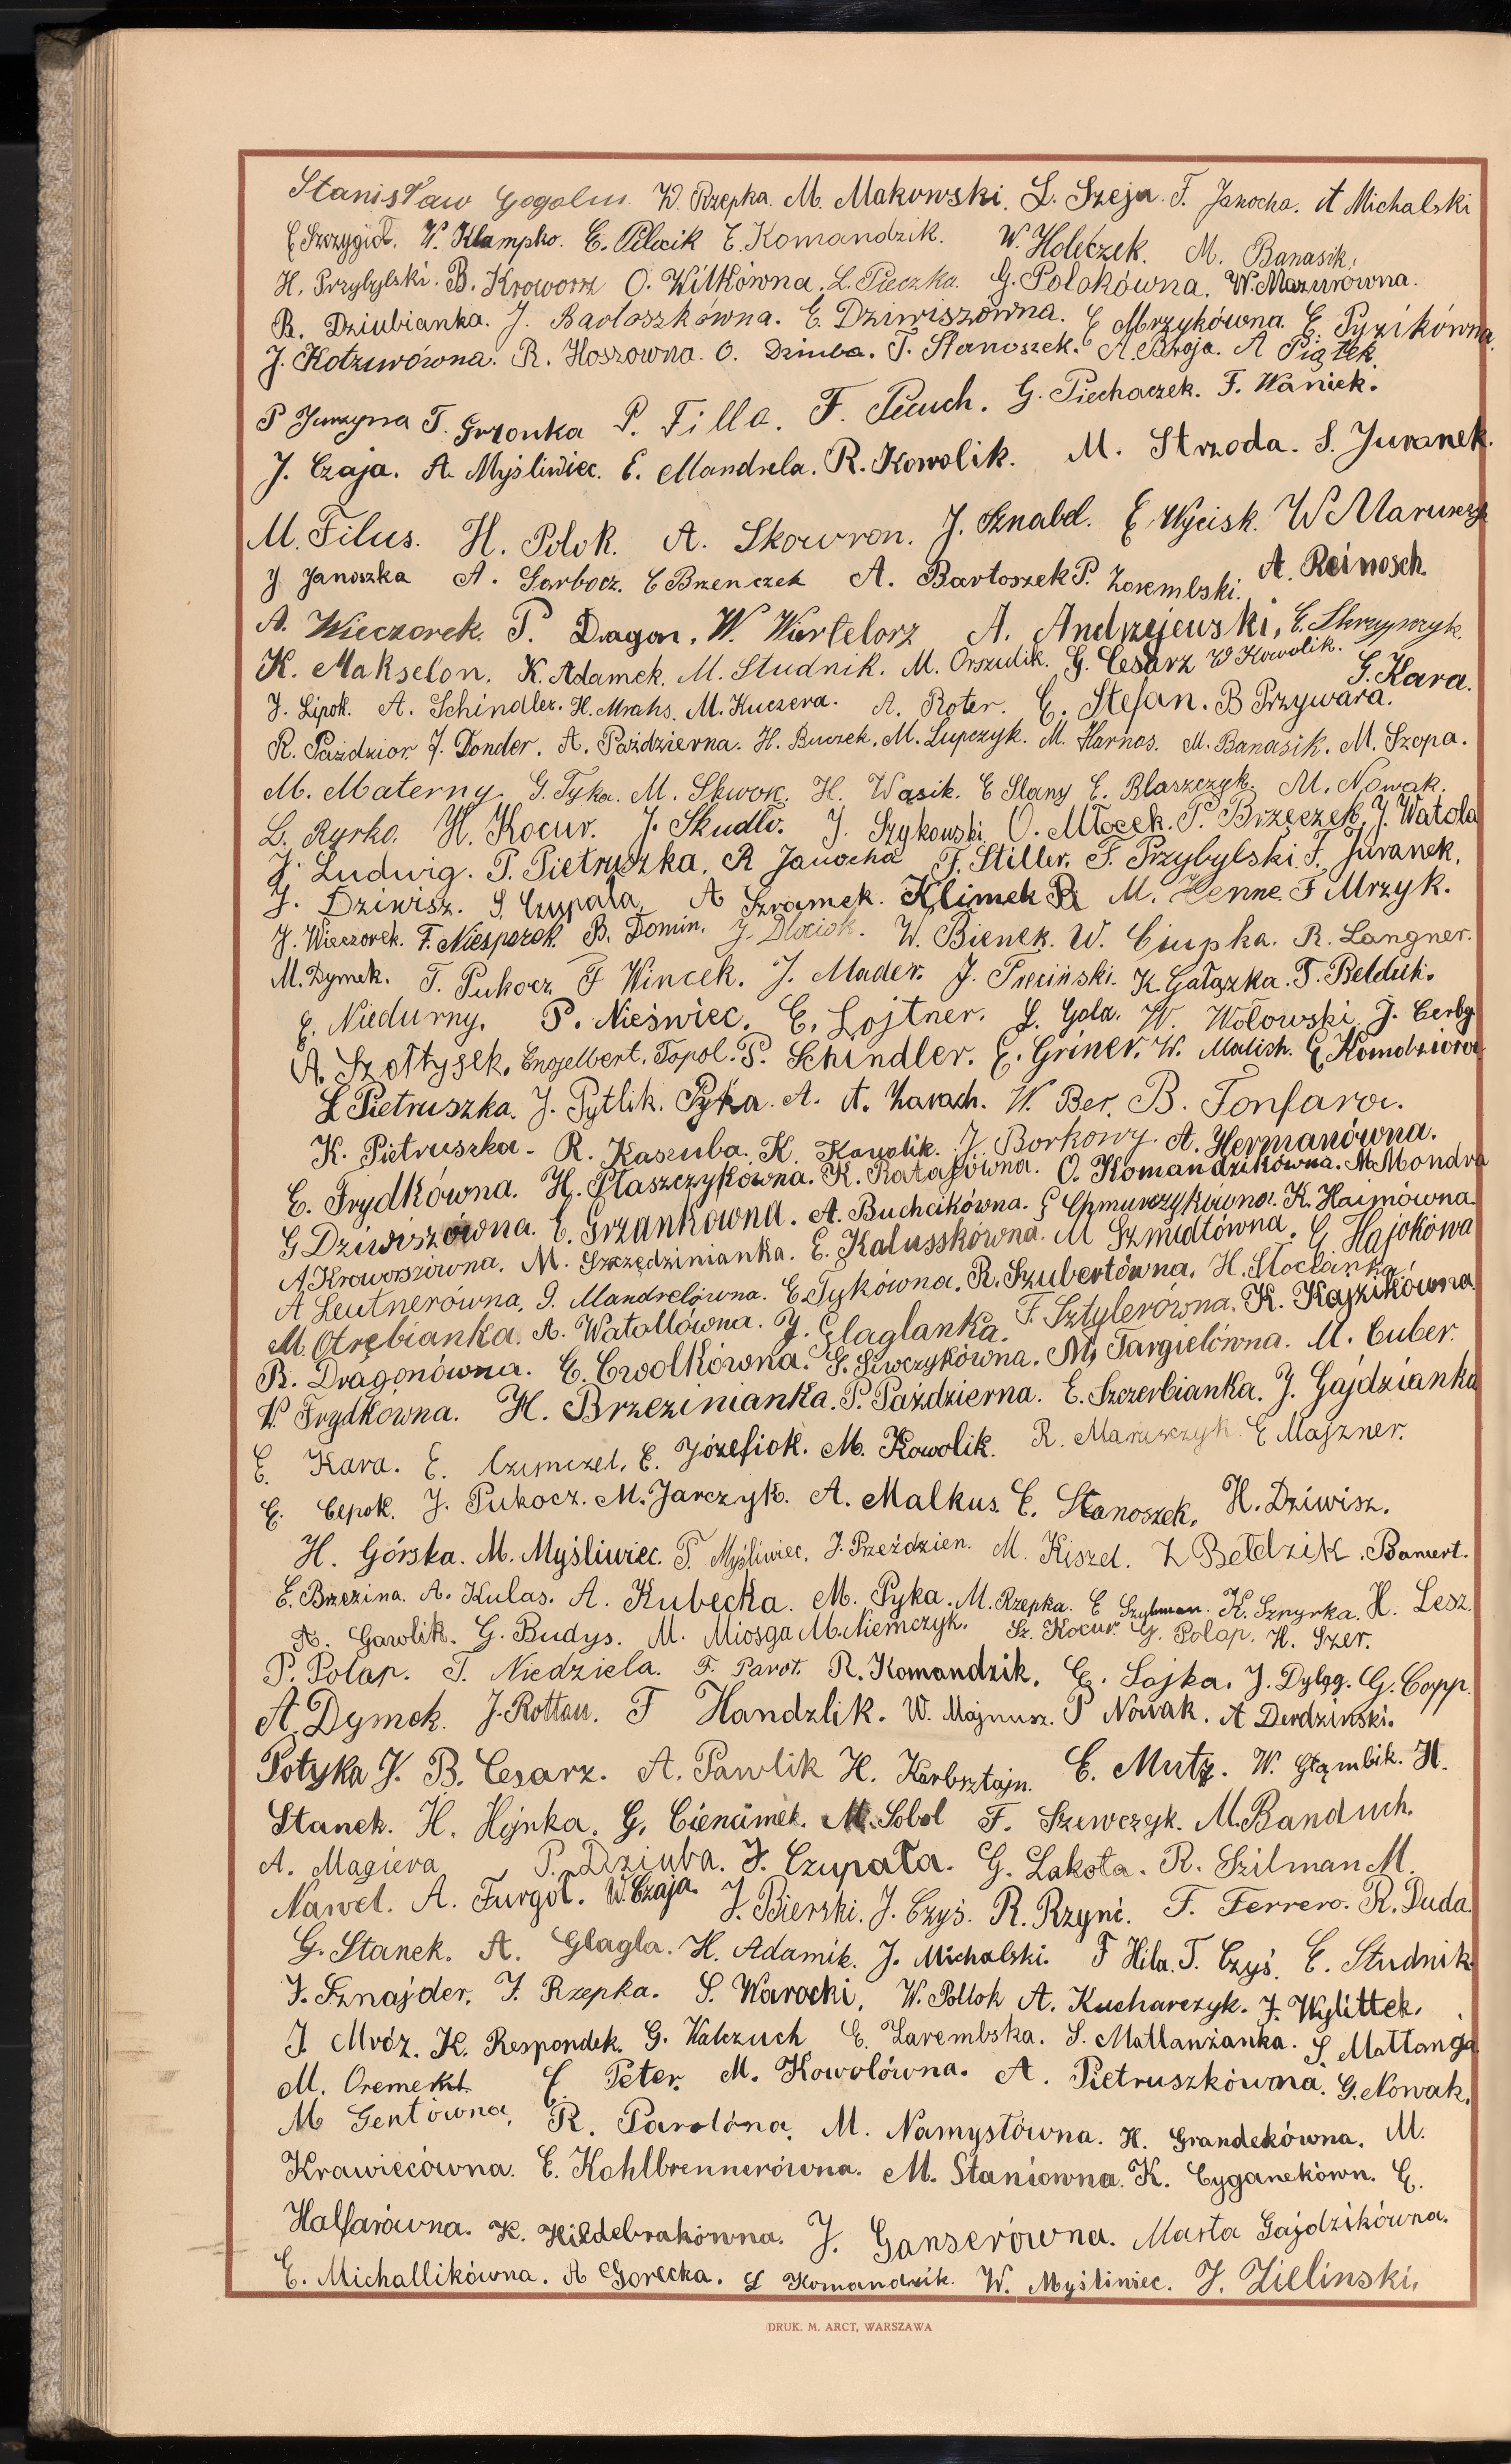 Stanisław Gogolin W. Rzepka. M. Makowski. L. Szeja. F. Janocha. A Michalski
E Szczygieł. W. Klampko. E. Pilocik E. Komandzik. W. Holeczek. M. Banasik.
H. Przybylski. B. Kroworz O. Wilkówna. L. Pieczka. G. Polokówna. W. Mazurówna.
R. Dziubianka. J. Bartoszkówna. E. Dziwiszówna. E Mrzykówna. E. Pyzikówna.
J. Kotzurówna. R. Hoszowna. O. Dziuba. T. Stanoszek. A. Broja. A Piątek.
P Jurzyna T. Grzonka P. Filla. F. Pieuch. G. Piechaczek. F. Waniek.
J. Czaja. A. Myśliwiec. E. Mandrela. R. Kowolik. M. Strzoda. S. Juranek.
M. Filus. H. Polok. A. Skowron. J. Sznabel. E. Wycisk. W Marurczyk
J Janoszka A. Garbocz. E Brzenczek A. Bartoszek P. Zaremlski. A. Reinosch.
A. Wieczorek. P. Dragon. W. Wiertelorz A. Andrzejewski, E. Skrzypczyk.
K. Makselon. K. Adamek. M. Studnik. M. Orszulik. G. Cesarz W Kowolik. G. Kara.
J. Lipok. A. Schindler. H. Mrahs. M. Kuczera. A. Roter. E. Stefan. B Przywara.
R. Paździor. J. Donder. A. Październa. H. Buczek. M. Lupczyk. M. Harnos. M. Banasik. M. Szopa.
M. Materny. G. Tyka. M. Skwok. H. Wąsik. E Slany E. Blaszczyk. M. Nowak.
L. Ryrko. H. Kocur. J. Skudło. J. Szykowski O. Młocek. P. Brzęczek. J. Watola
J. Ludwig. P. Pietruszka. R Janocha F. Stiller. F. Przybylski. F. Juranek.
J. Dziwisz. S. Czupała. A Szramek. Klimek R M. Henne. F Mrzyk.
J. Wieczorek. F. Niesporek. B. Domin. J. Dlociok. W. Bienek. W. Ciupka. R. Langner.
M. Dymek. T. Pukocz F Wincek. J. Mader. J. Trzciński. K. Gałązka. T. Bełdzik.
E. Niedurny. P. Nieświec. E. Lojtner. L. Gola. W. Wołowski J. Cerby
A. Szołtysek. Engelbert. Topol. P. Schindler. E. Griner. W. Malich. E Komodzioroz
L Pietruszka. J. Pytlik. Pyka. A. A. Zarach. W. Ber. B. Fonfara.
K. Pietruszka - R. Kaszuba. K. Kowolik. J. Borkowy. A. Hermanówna.
E. Frydkówna. H. Płaszczykówna. K. Ratajówna. O. Komandzikówna. M. Mondra
G Dziwiszówna. E. Grzankowna. A. Buchcikówna. G Chmurczykówna. K. Haimówna.
A Kroworszówna. M. Szczędzinianka. E. Kalusskówna. M Szmidtówna. G Hajokówa
A Leutnerówna. G. Mandrelówna. E. Tykówna. R. Szubertówna. H. Stoclanka.
M. Otrębianka. A. Watollówna. J. Glaglanka. F. Sztylerówna. K. Kajzikówna.
R. Dragonówna. E. Cwolkówna. G. Szewczykówna. M. Targielówna. M. Cuber.
W. Frydkówna. H. Brzezinianka. P. Październa. E. Szczerbianka. J. Gajdzianka
E. Kara. E. Czemczel. E. Józefiok. M. Kowolik. R. Marurczyk. E Majzner.
E. Cepok. J. Pukocz. M. Jarczyk. A. Malkus. E. Stanoszek. H. Dziwisz.
H. Górska. M. Myśliwiec. P. Myśliwiec. J. Przeździen. M. Kiszel. L Bełdzik. Banert.
E. Brzezina. A. Kulas. A. Kubecka. M. Pyka. M. Rzepka. E Szylman. K. Sznyrka. H. Lesz.
A. Gawlik. G. Budys. M. Miosga M. Niemczyk. Sz. Kocur G. Polap. H. Szer.
P. Połap. T. Niedziela. F. Parot. R. Komandzik. E. Sojka. J. Dyląg. G. Copp.
A. Dymek. J. Rottau. F Handzlik. W. Majnusz. P Nowak. A Derdziński.
Potyka J. B. Cesarz. A. Pawlik H. Karbsztajn. E. Mutz. W. Głąmbik. H.
Stanek. H. Hojnka. G. Cienćimek. M. Sobol F. Szewczyk. M. Banduch.
A. Magiera P. Dziuba. J. Czupała. G. Lakota. R. Szilman M.
Nawel. A. Furgoł. W. Czaja. J. Bierski. J. Czyś. R. Rzynć. F. Ferrero. R. Duda.
G. Stanek. A. Glagla. H. Adamik. J. Michalski. F Hila. T. Czyś. E. Studnik.
J. Sznajder. J. Rzepka. S. Waroćki. W. Pollok A. Kucharczyk. J. Wylittek.
J. Mróz. K. Respondek. G. Walczuch E. Zarembska. S. Matlanżanka. S. Mattanja
M. Oremekt. E Peter. M. Kowolówna. A. Pietruszkówna. G. Nowak.
M Gentówna. R. Parolóna. M. Namysłówna. H. Grandekówna. M.
Krawiecówna. E. Kohlbrennerówna. M. Staniowna. K. Cyganekówn. E.
Halfarówna. K. Hildebrakówna. J. Ganserówna. Marta Gajdzikówna.
E. Michallikówna. A Gorecka. L Komandzik. W. Myśliwiec. J. Zielinski.
DRUK. M. ARCT, WARSZAWA